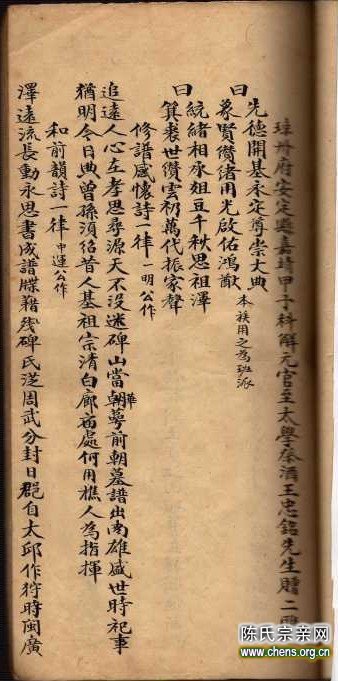 琼州府安定縣嘉靖甲子科解元官至太學祭酒王忠銘先生贈二聯
曰
先德開基永定尊崇大典
象賢儹緒用光啟佑鴻猷 本族用之為班派
曰
統緒相承俎豆千秋思祖澤
箕裘世儹雲礽萬代振家聲
修譜感懷詩一律 一明公作
追遠人心在孝思尋源天不没迷碑山當華朝萼前朝墓譜出南雄盛世時祀事
猶明今日典曾孫須紹昔人基祖宗清白廊西處何用樵人為指揮
和前韻詩一律 中運公作
澤遠流長動永思書成譜牒籍殘碑氏從周武分封日郡自太邱作狩時閩廣
陈氏宗亲网
www.chens.org.cn